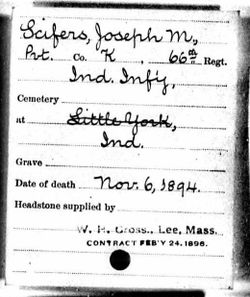 Scifers, Joseph M.,
Pvt. Co. K, 66th Regt.
Ind. Infy,
Cemetery
at Little York,
Ind.
Grave
Date of death Nov. 6, 1894.
Headstone supplied by
W. H. Gross., Lee, Mass.
CONTRACT FEB'Y 24. 1896.